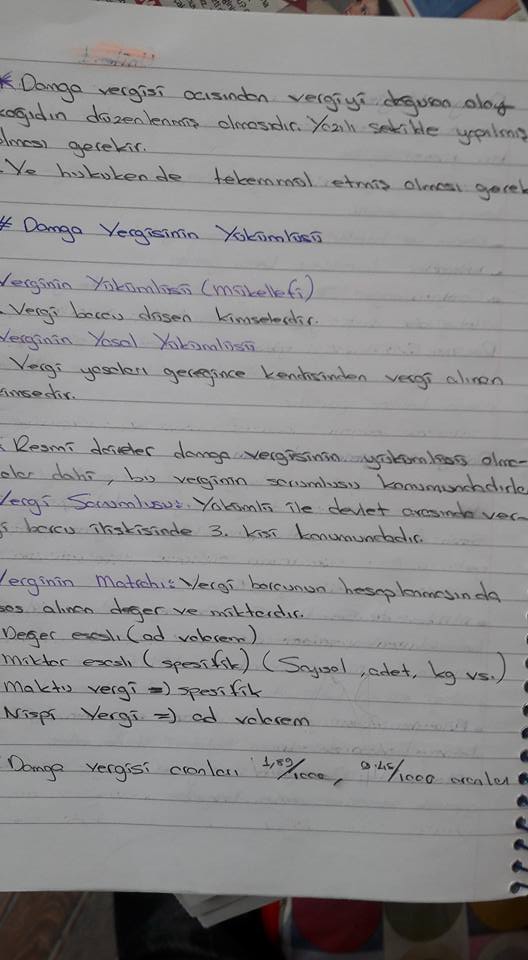 * Damga vergisi acısından vergiyi doguran olay
kağıdın düzenlenmiş olmasıdır. Yazılı sekilde yapılmış
olması gerekir.
. Ve hukuken de tekemmül etmiş olması gerek
# Damga Vergisinin Yükümlüsü
Verginin Yükümlüsü (mükellefi)
. Vergi borcu düsen kimselerdir.
Verginin Yasal Yükümlüsü
Vergi yasaları geregince kendisinden vergi alınan
kimsedir.
. Resmi daireler damga vergisinin yükümlüsü olma-
alar dahi, bu verginin sorumlusu konumundadırla
Vergi Sorumlusu: Yükümlü ile devlet arasında ver-
gi borcu ilişkisinde 3. kişi konumundadır.
Verginin Matrahı: Vergi borcunun hesaplanmasında
esas alınan deger ve miktardır.
Deger esaslı (ad valorem)
Miktar esaslı (spesifik) (Sayısal, adet, kg vs.)
Maktu vergi => spesifik
Nispi Vergi => ad valorem
Damga vergisi oranları 1,89/1000, 9.48/1000 oranları